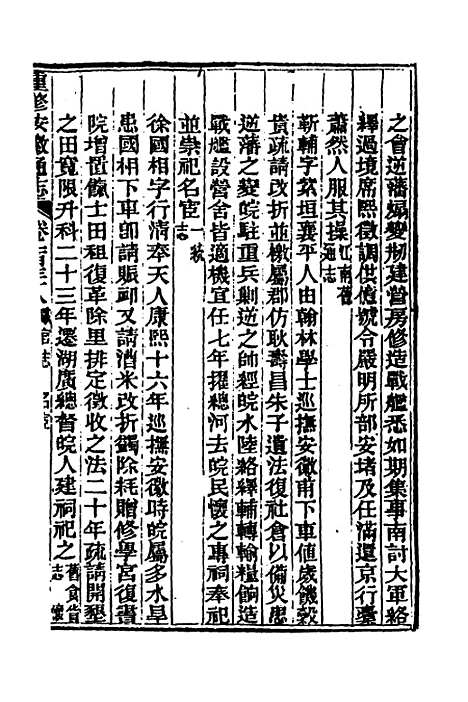 之會逆藩煽變刱建營房修造戰艦悉如期集事南討大軍絡
繹過境席熙徵調供億號令嚴明所部安堵及任滿還京行橐
蕭然人服其操江南舊通志
靳輔字紫垣襄平人由翰林學士巡撫安徽甫下車值歲饑穀
貴疏請改折並檄屬郡仿耿壽昌朱子遺法復社倉以備災患
逆藩之變皖駐重兵剿逆之師經皖水陸絡繹輔轉輸糧餉造
戰艦設營舍皆適機宜任七年擢總河去皖民懷之專祠奉祀
並崇祀名宦一統志
徐國相字行清奉天人康熙十六年巡撫安徽時皖屬多水旱
患國相下車卽請賑卹又請漕米改折蠲除耗贈修學宮復書
院增置餼士田租復革除里排定徵收之法二十年疏請開墾
之田寬限升科二十三年遷湖廣總督皖人建祠祀之舊志
重修安徽通志 卷一百三八 職官志 名宦